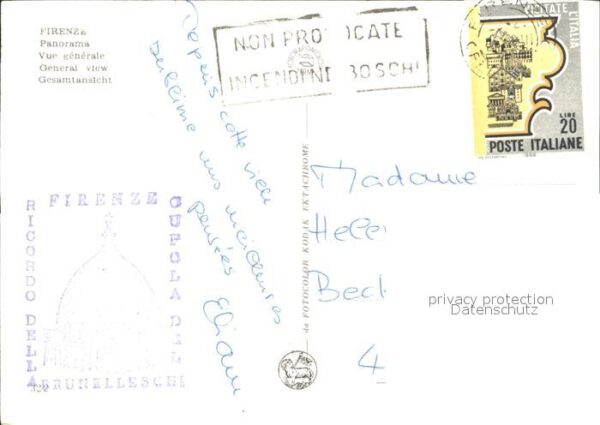 FIRENZE
Panorama
Vue générale
General view
Gesamtansicht
NON PROVOCATE
INCENDI NEI BOSCHI
VISITATE
L'ITALIA
LIRE
20
POSTE ITALIANE
1966
Depuis cette ville
sublime nos meilleures
pensées
Eliane
da FOTOCOLOR KODAK EKTACHROME
Madame
Hele
Beck
4
privacy protection
Datenschutz
FIRENZE
RICORDO DELLA
CUPOLA DEL
BRUNELLESCHI